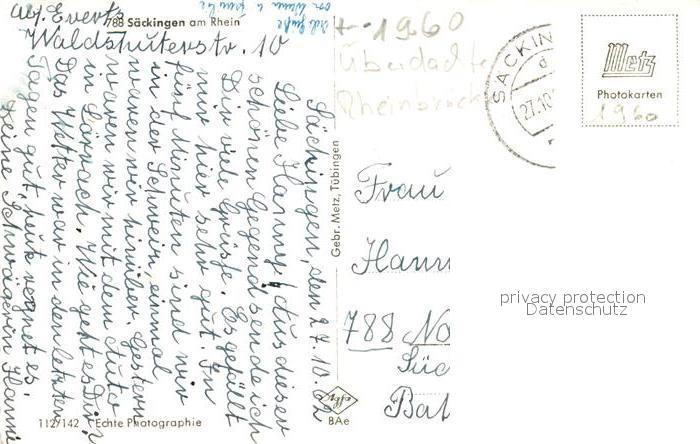 Abs. Everts
788 Säckingen am Rhein
Waldshuterstr. 10
Säckingen, den 27.10.62
Liebe Hanny! Aus dieser
schönen Gegend sende ich
Dir viele Grüsse. Es gefällt
mir hier sehr gut. In
fünf Minuten sind wir
in der Schweiz, einmal
waren wir hinüber. Gestern
waren wir mit dem Auto
in Lörrach. Wie geht es Dir?
Das Wetter war in den letzten
Tagen gut, heute regnet es.
Deine Schwägerin Hanni
112/142 Echte Photographie
Gebr. Metz, Tübingen
1960
Überdachte
Rheinbrück
SÄCKIN
27.10.
Metz
Photokarten
1960
Frau
Hann
788 No
Süd
Bal
privacy protection
Datenschutz
Agfa
BAe